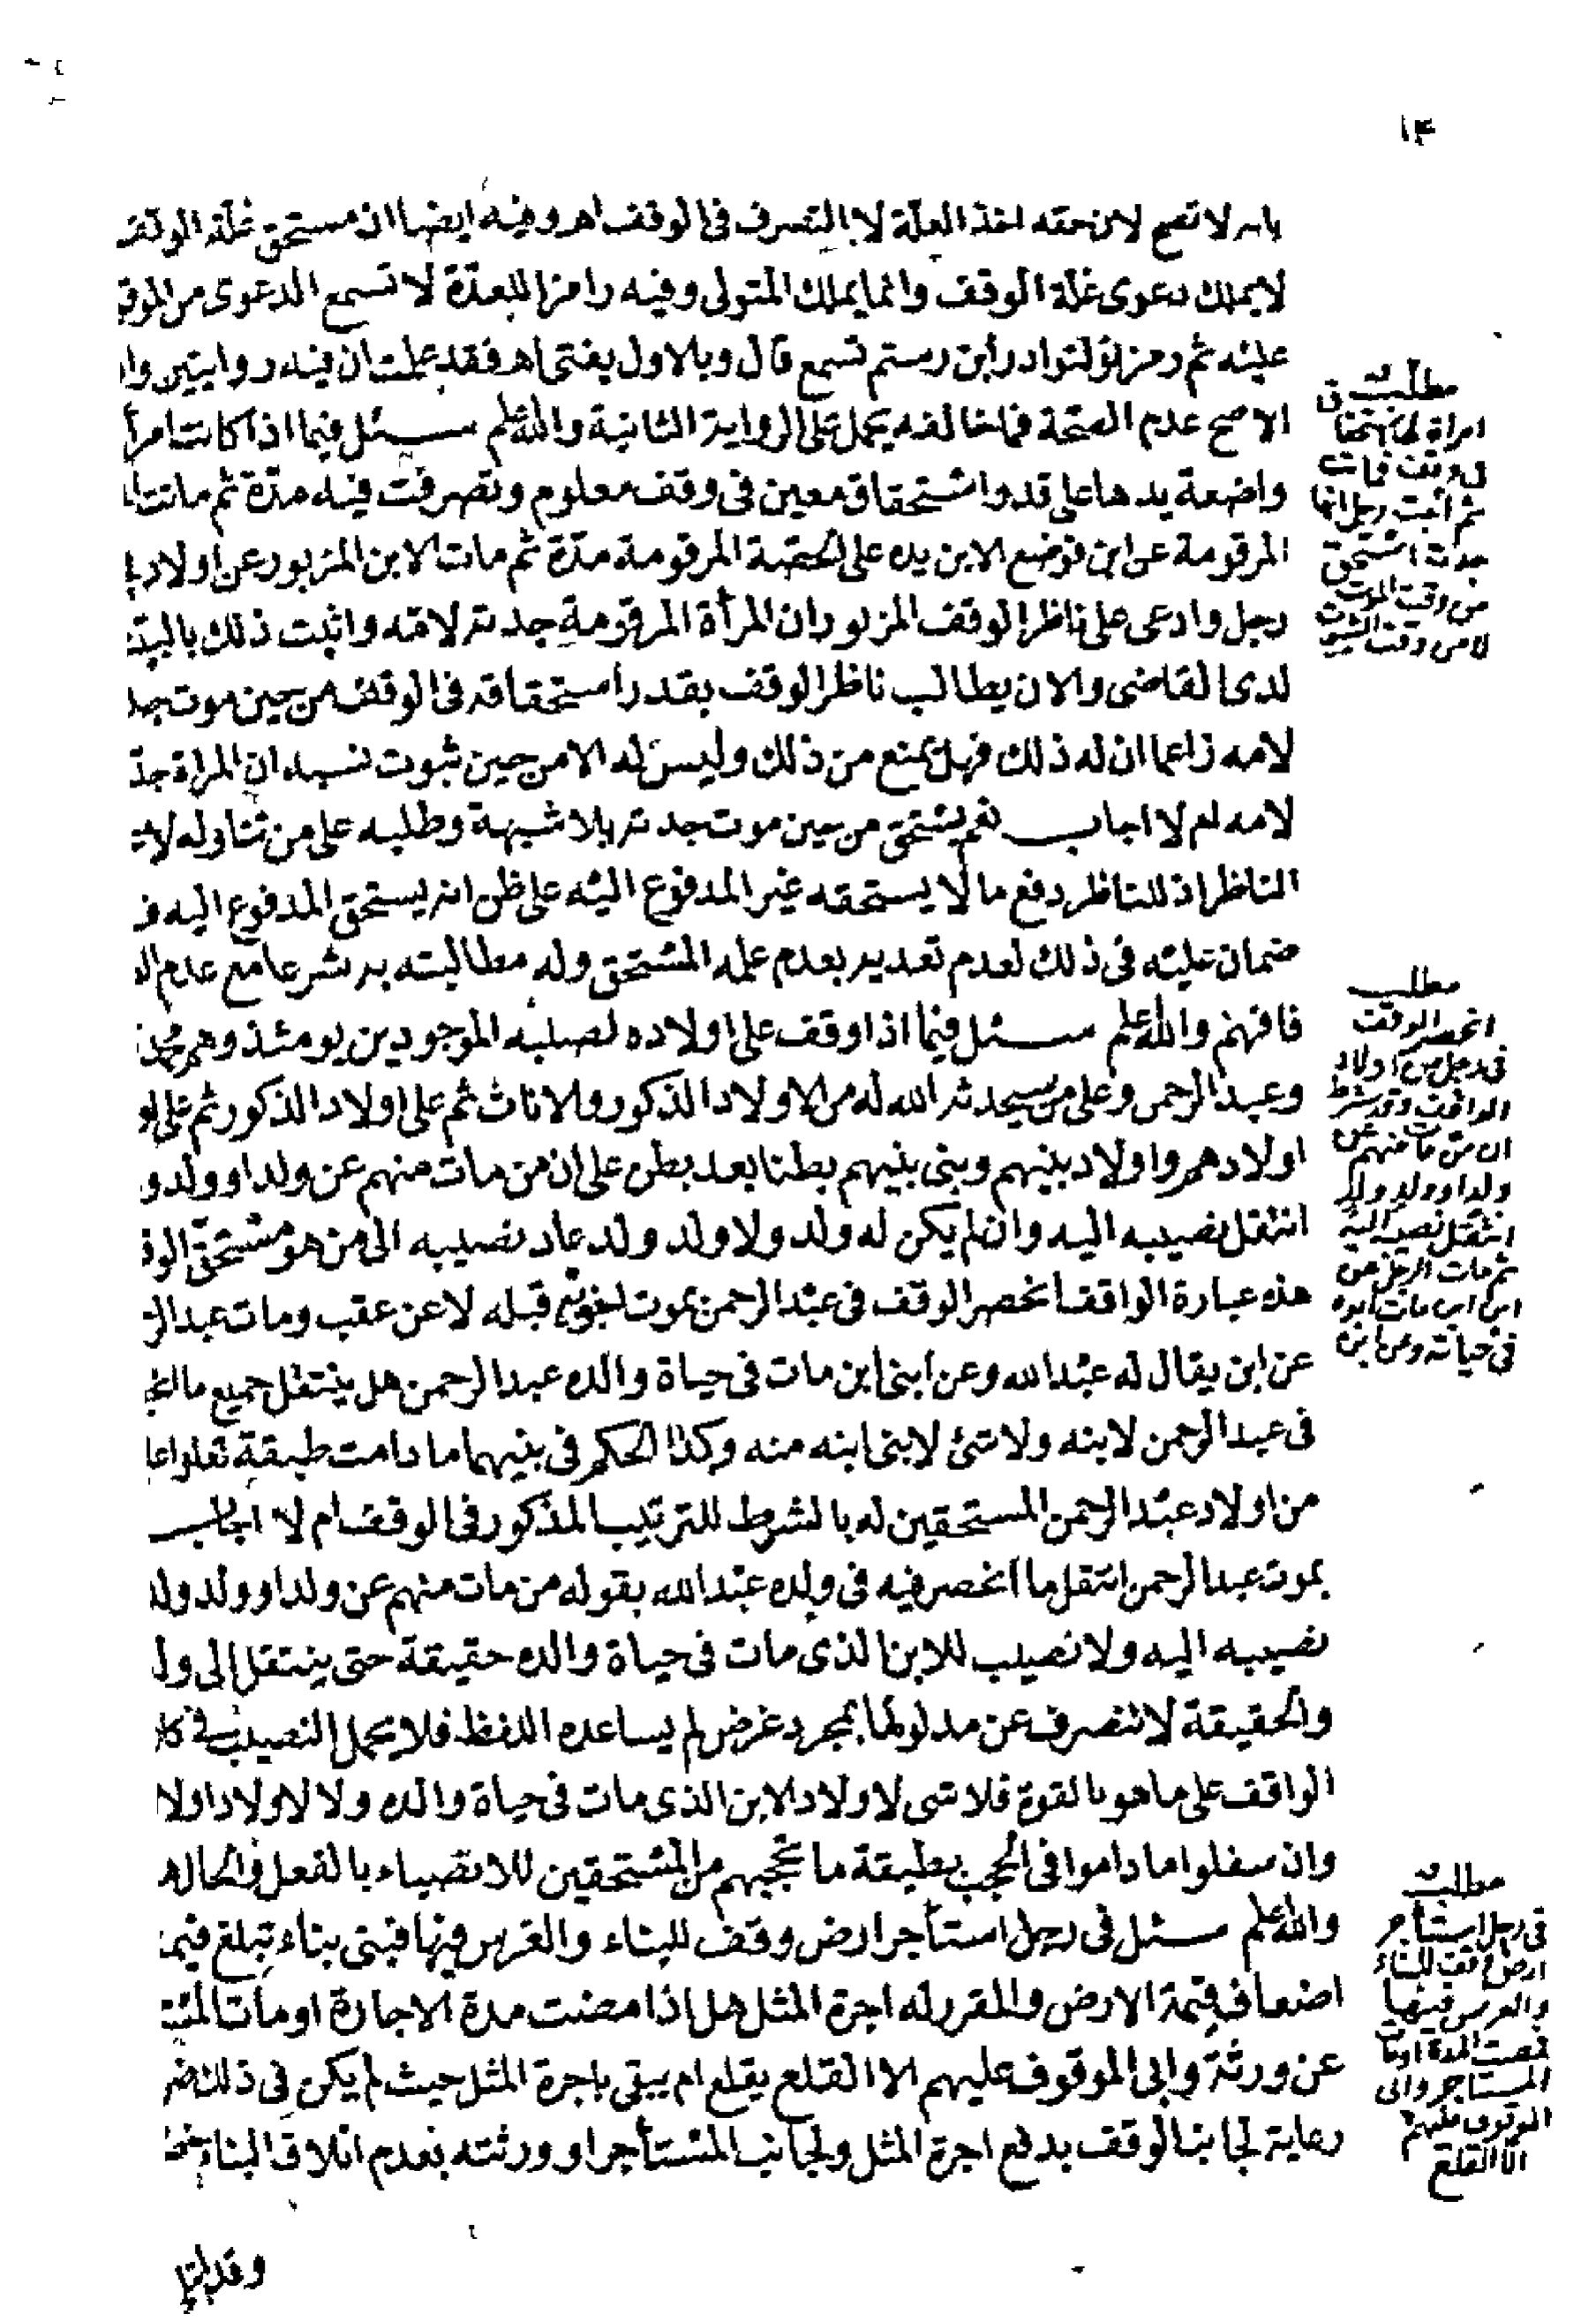 ١٤
لا تصح لان حقه اخذ الغلة لا التصرف فى الوقف اهـ وفيه ايضا ان مستحق غلة الوقف
لا يملك دعوى غلة الوقف وانما يملك المتولى وفيه رامزا للعدّة لا تسمع الدعوى من
عليه ثم رمز لنوادر ابن رستم تسمع قال وبالاول يفتى اهـ فقد علمت ان فيه روايتين وان
الاصح عدم الصحة فما خالفه يحمل على الرواية الثانية والله اعلم سئل فيما اذا كانت امرأ
واضعة يدها على قدر استحقاق معين فى وقف معلوم وتصرفت فيه مدّة ثم ماتت
المرقومة عن ابن فوضع الابن يده على الحصة المرقومة مدّة ثم مات الابن المزبور عن اولاد
رجل وادعى على ناظر الوقف المزبور ان المرأة المرقومة جدته لامّه واثبت ذلك
لدى القاضى والان يطالب ناظر الوقف بقدر استحقاقه فى الوقف من حين موت
لامه زاعما ان له ذلك فهل يمنع من ذلك وليس له الا من حين ثبوت نسبه ان المراة
لامه ام لا اجاب نعم يستحق من حين موت جدته بلا شبهة وطلبه على من تناوله لا
الناظر اذ للناظر دفع ما لا يستحقه غير المدفوع اليه على ظن انه يستحق المدفوع اليه
ضمان عليه فى ذلك لعدم تعديه بعدم علمه المستحق وله مطالبته به شرعا مع عدم
فافهم والله اعلم سئل فيما اذا وقف على اولاده لصلبه الموجودين يومئذ وهم محمد
وعبد الرحمن وعلى من سيحدثه الله له من الاولاد الذكور والاناث ثم على اولاد الذكور ثم على
اولادهم واولاد بنيهم وبنى بنيهم بطنا بعد بطن على ان من مات منهم عن ولد او ولد و
انتقل نصيبه اليه وان لم يكن له ولد ولا ولد ولد عاد نصيبه الى من هو مستحق
هذه عبارة الواقف انحصر الوقف فى عبد الرحمن بموت اخوته قبله لا عن عقب ومات
عن ابن يقال له عبد الله وعن ابنى ابن مات فى حياة والده عبد الرحمن هل ينتقل جميع ما
فى عبد الرحمن لابنه ولا شئ لابنى ابنه منه وكذا الحكم فى بنيهما ما دامت طبقة تعلوا
من اولاد عبد الرحمن المستحقين له بالشرط للترتيب المذكور فى الوقف ام لا اجاب
بموت عبد الرحمن انتقل ما انحصر فيه فى ولده عبد الله بقوله من مات منهم عن ولد او ولد ولد
نصيبه اليه ولا نصيب للابن الذى مات فى حياة والده حقيقة حتى ينتقل الى
والحقيقة لا تنصرف عن مدلولها بمجرد غرض لم يساعده اللفظ فلا يحمل النصيب فى
الواقف على ما هو بالقوة فلا شى لاولاد الابن الذى مات فى حياة والده ولا لاولاد
وان سفلوا ما داموا فى الحجب بطبقة ما تحجبهم من المستحقين للانصباء بالفعل
والله اعلم سئل فى رجل استأجر ارض وقف للبناء والغرس فيها فبنى بناء تبلغ
اضعاف قيمة الارض والمقرر له اجرة المثل هل اذا مضت مدة الاجارة او مات
عن ورثة وابى الموقوف عليهم الا القلع يقلع ام يبقى باجرة المثل حيث لم يكن فى ذلك
رعاية لجانب الوقف بدفع اجرة المثل ولجانب المستأجر او ورثته بعدم اتلاف البناء
مطلب فى
امراة لها استحقاق
فى وقف فماتت
ثم اثبت رجل انها
جدته استحق
من وقت الموت
لا من وقت الثبوت
مطلب
انحصر الوقف
فى رجل من اولاد
الواقف وقد شرط
ان من مات منهم عن
ولد او ولد ولد
انتقل نصيبه اليه
ثم مات الرجل عن
ابن ابن مات ابوه
فى حياته وعن ابن
مطلب
فى رجل استأجر
ارض وقف للبناء
والغرس فيها
فمضت المدة او مات
المستاجر وابى
الموقوف عليهم
الا القلع